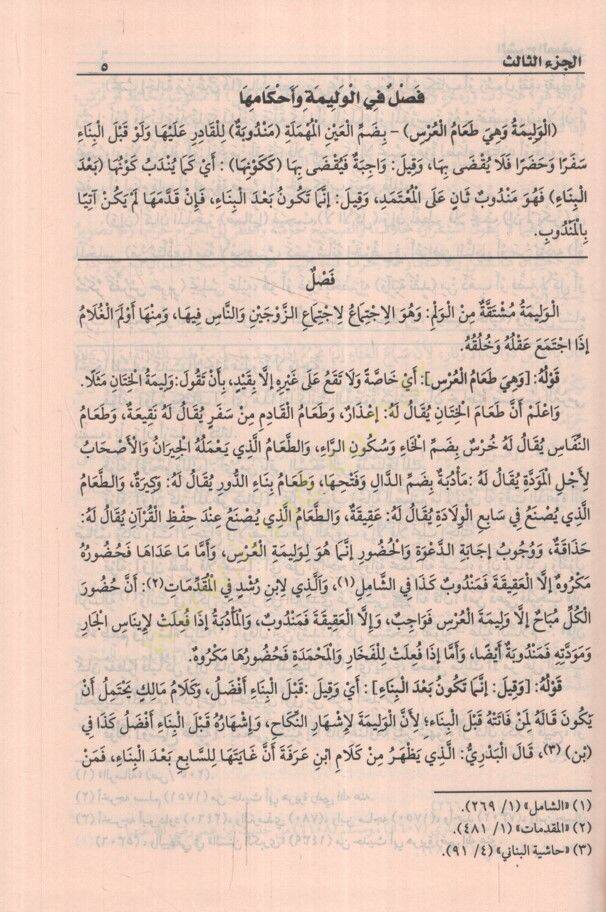 الجزء الثالث
٥
فَصْلٌ فِي الْوَلِيمَةِ وَأَحْكَامِهَا
(الْوَلِيمَةُ وَهِيَ طَعَامُ الْعُرْسِ) - بِضَمِّ الْعَيْنِ الْمُهْمَلَةِ (مَنْدُوبَةٌ) لِلْقَادِرِ عَلَيْهَا وَلَوْ قَبْلَ الْبِنَاءِ
سَفَرًا وَحَضَرًا فَلَا يُقْضَى بِهَا، وَقِيلَ: وَاجِبَةٌ فَيُقْضَى بِهَا (كَكَوْنِهَا) : أَيْ كَمَا يُنْدَبُ كَوْنُهَا (بَعْدَ
الْبِنَاءِ) فَهُوَ مَنْدُوبٌ ثَانٍ عَلَى الْمُعْتَمَدِ، وَقِيلَ: إنَّمَا تَكُونُ بَعْدَ الْبِنَاءِ، فَإِنْ قَدَّمَهَا لَمْ يَكُنْ آتِيًا
بِالْمَنْدُوبِ.
فَصْلٌ
الْوَلِيمَةُ مُشْتَقَّةٌ مِنْ الْوَلْمِ: وَهُوَ الِاجْتِمَاعُ لِاجْتِمَاعِ الزَّوْجَيْنِ وَالنَّاسِ فِيهَا، وَمِنْهَا أَوْلَمَ الْغُلَامُ
إذَا اجْتَمَعَ عَقْلُهُ وَخُلُقُهُ.
قَوْلُهُ: [وَهِيَ طَعَامُ الْعُرْسِ]: أَيْ خَاصَّةً وَلَا تَقَعُ عَلَى غَيْرِهِ إلَّا بِقَيْدٍ، بِأَنْ تَقُولَ: وَلِيمَةُ الْخِتَانِ مَثَلًا.
وَاعْلَمْ أَنَّ طَعَامَ الْخِتَانِ يُقَالُ لَهُ: إعْذَارٌ، وَطَعَامُ الْقَادِمِ مِنْ سَفَرٍ يُقَالُ لَهُ نَقِيعَةٌ، وَطَعَامُ
النِّفَاسِ يُقَالُ لَهُ خُرْسٌ بِضَمِّ الْخَاءِ وَسُكُونِ الرَّاءِ، وَالطَّعَامُ الَّذِي يَعْمَلُهُ الْجِيرَانُ وَالْأَصْحَابُ
لِأَجْلِ الْمَوَدَّةِ يُقَالُ لَهُ :مَأْدُبَةٌ بِضَمِّ الدَّالِ وَفَتْحِهَا، وَطَعَامُ بِنَاءِ الدُّورِ يُقَالُ لَهُ: وَكِيرَةٌ، وَالطَّعَامُ
الَّذِي يُصْنَعُ فِي سَابِعِ الْوِلَادَةِ يُقَالُ لَهُ: عَقِيقَةٌ، وَالطَّعَامُ الَّذِي يُصْنَعُ عِنْدَ حِفْظِ الْقُرْآنِ يُقَالُ لَهُ:
حَذَاقَةٌ، وَوُجُوبُ إجَابَةِ الدَّعْوَةِ وَالْحُضُورِ إنَّمَا هُوَ لِوَلِيمَةِ الْعُرْسِ، وَأَمَّا مَا عَدَاهَا فَحُضُورُهُ
مَكْرُوهٌ إلَّا الْعَقِيقَةَ فَمَنْدُوبٌ كَذَا فِي الشَّامِلِ(١)، وَاَلَّذِي لِابْنِ رُشْدٍ فِي الْمُقَدِّمَاتِ(٢): أَنَّ حُضُورَ
الْكُلِّ مُبَاحٌ إلَّا وَلِيمَةَ الْعُرْسِ فَوَاجِبٌ، وَإِلَّا الْعَقِيقَةَ فَمَنْدُوبٌ، وَالْمَأْدُبَةُ إذَا فُعِلَتْ لِإِينَاسِ الْجَارِ
وَمَوَدَّتِهِ فَمَنْدُوبَةٌ أَيْضًا، وَأَمَّا إذَا فُعِلَتْ لِلْفَخَارِ وَالْمَحْمَدَةِ فَحُضُورُهَا مَكْرُوهٌ.
قَوْلُهُ: [وَقِيلَ: إنَّمَا تَكُونُ بَعْدَ الْبِنَاءِ] : أَيْ وَقِيلَ :قَبْلَ الْبِنَاءِ أَفْضَلُ، وَكَلَامُ مَالِكٍ يَحْتَمِلُ أَنْ
يَكُونَ قَالَهُ لِمَنْ فَاتَتْهُ قَبْلَ الْبِنَاءِ؛ لِأَنَّ الْوَلِيمَةَ لِإِشْهَارِ النِّكَاحِ، وَإِشْهَارُهُ قَبْلَ الْبِنَاءِ أَفْضَلُ كَذَا فِي
(بْنِ) (٣)، قَالَ الْبَدْرِيُّ: الَّذِي يَظْهَرُ مِنْ كَلَامِ ابْنِ عَرَفَةَ أَنَّ غَايَتَهَا لِلسَّابِعِ بَعْدَ الْبِنَاءِ، فَمَنْ
(١) «الشامل» (١/ ٢٦٩).
(٢) «المقدمات» (١/ ٤٨١).
(٣) «حاشية البناني» (٤/ ٩١).